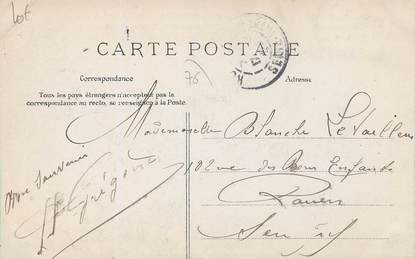 lot
CARTE POSTALE
Correspondance
Tous les pays étrangers n'acceptent pas la
correspondance au recto, se renseigner à la Poste.
76
Adresse
Mademoiselle Blanche Levaillant
182 rue des Bons Enfants
Rouen
Sen Inf
Souvenir
Grégoire